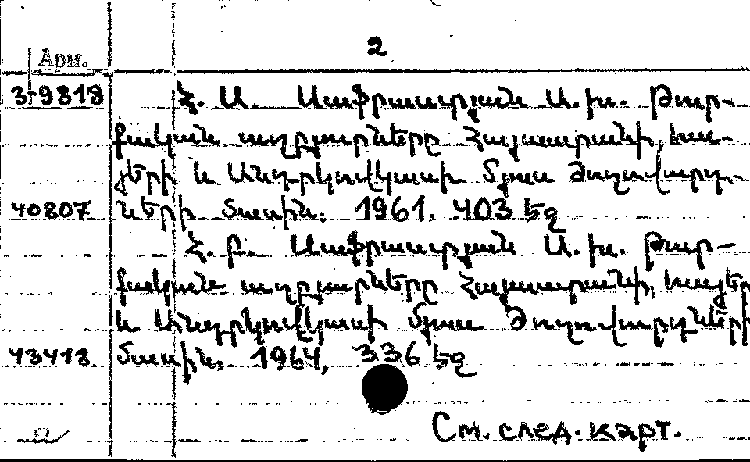 2
Арм.
3-9818 Հ. Ա. Սաֆրաստյան Ա. Խ. Թուր-
քական աղբյուրները Հայաստանի, հա-
յերի և Անդրկովկասի մյուս ժողովուրդ-
40807 ների մասին. 1961. 403 էջ
Հ. Բ. Սաֆրաստյան Ա. Խ. Թուր-
քական աղբյուրները Հայաստանի, հայեր
և Անդրկովկասի մյուս ժողովուրդների
43413 մասին. 1964, 336 էջ
См. след. карт.